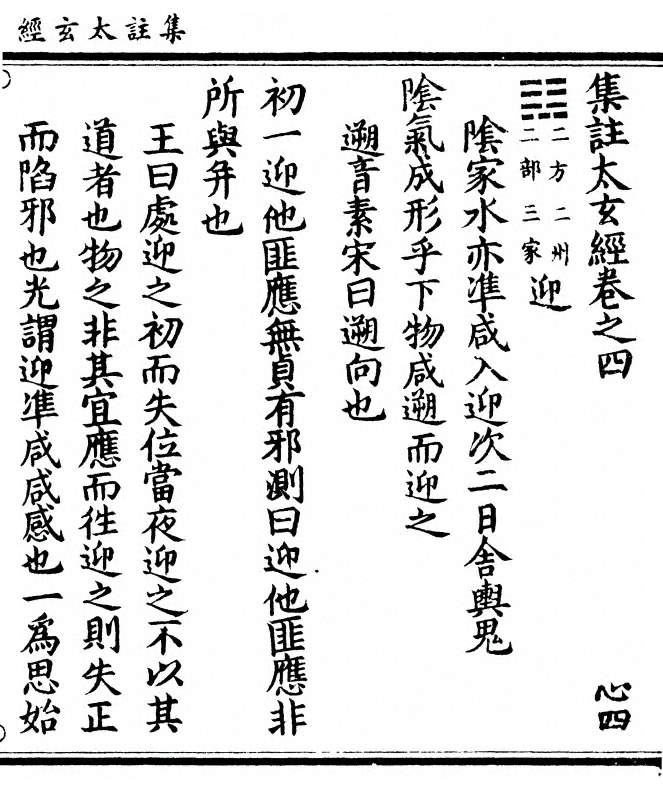 集註太玄經
集註太玄經卷之四 心四
二方二州
二部三家
迎
陰家水亦準咸入迎次二日舍輿鬼
陰氣成形乎下物咸遡而迎之
遡音素宋曰遡向也
初一迎他匪應無貞有邪測曰迎他匪應非
所與并也
王曰處迎之初而失位當夜迎之不以其
道者也物之非其宜應而徃迎之則失正
而陷邪也光謂迎準咸咸感也一爲思始